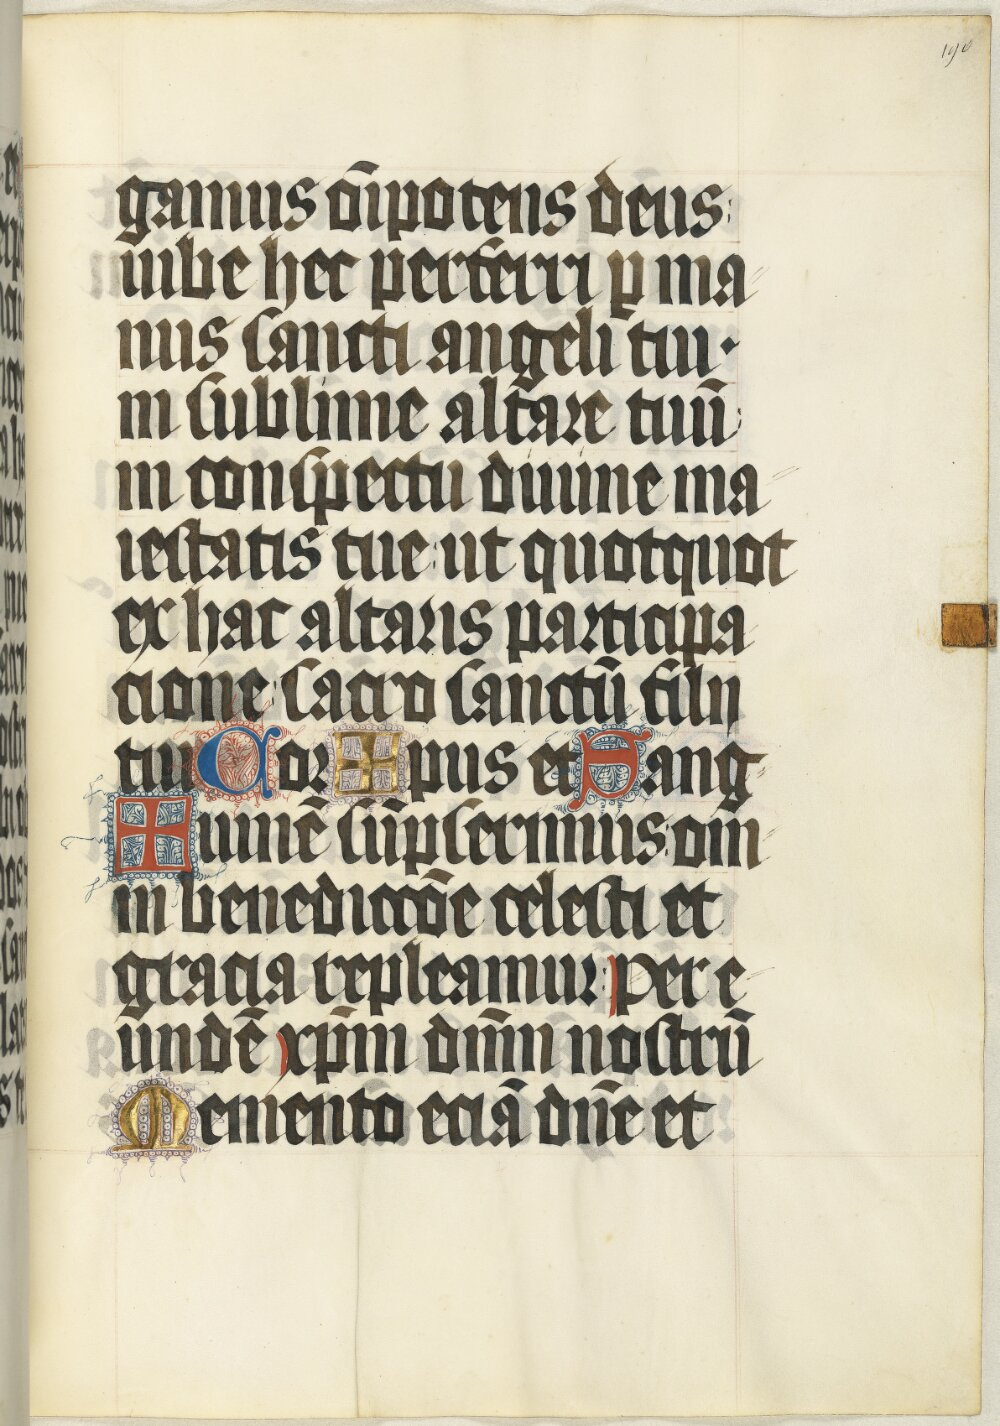 190
gamus oīpotens deus:
iube hec perferri ꝑ ma
nus sancti angeli tui·
in sublime altare tuū:
in conspectu diuine ma
iestatis tue: ut quotquot
ex hac altaris participa
cione: sacro sanctū filii
tui Cor✠pus et Sang
✠uinē sūpserimus: om̄
in benediccōe celesti et
gracia repleamur: Per e
undē xp̄m dn̄m nostrū
Memento eciā dn̄e et